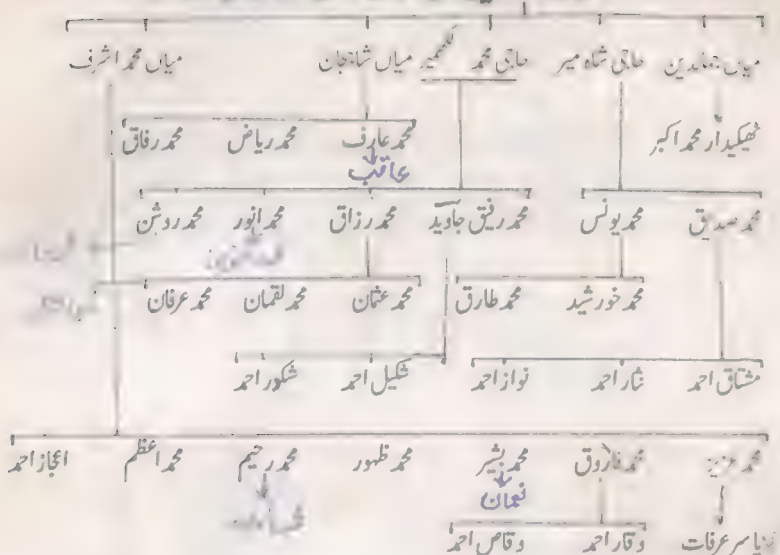 میاں جھنڈین حاجی شاہ میر حاجی محمد میاں شاہجہان میاں محمد اشرف
ٹھیکیدار محمد اکبر
محمد عارف محمد ریاض محمد رفاق
عاقب
محمد صدیق محمد یونس محمد رفیق جاوید محمد رزاق محمد انور محمد روشن
محمد خورشید محمد طارق محمد عثمان محمد لقمان محمد عرفان
مشتاق احمد نثار احمد نواز احمد شکیل احمد شکور احمد
محمد عزیز محمد فاروق محمد بشیر محمد ظہور محمد رحیم محمد اعظم اعجاز احمد
نعمان
یاسر عرفات وقار احمد وقاص احمد